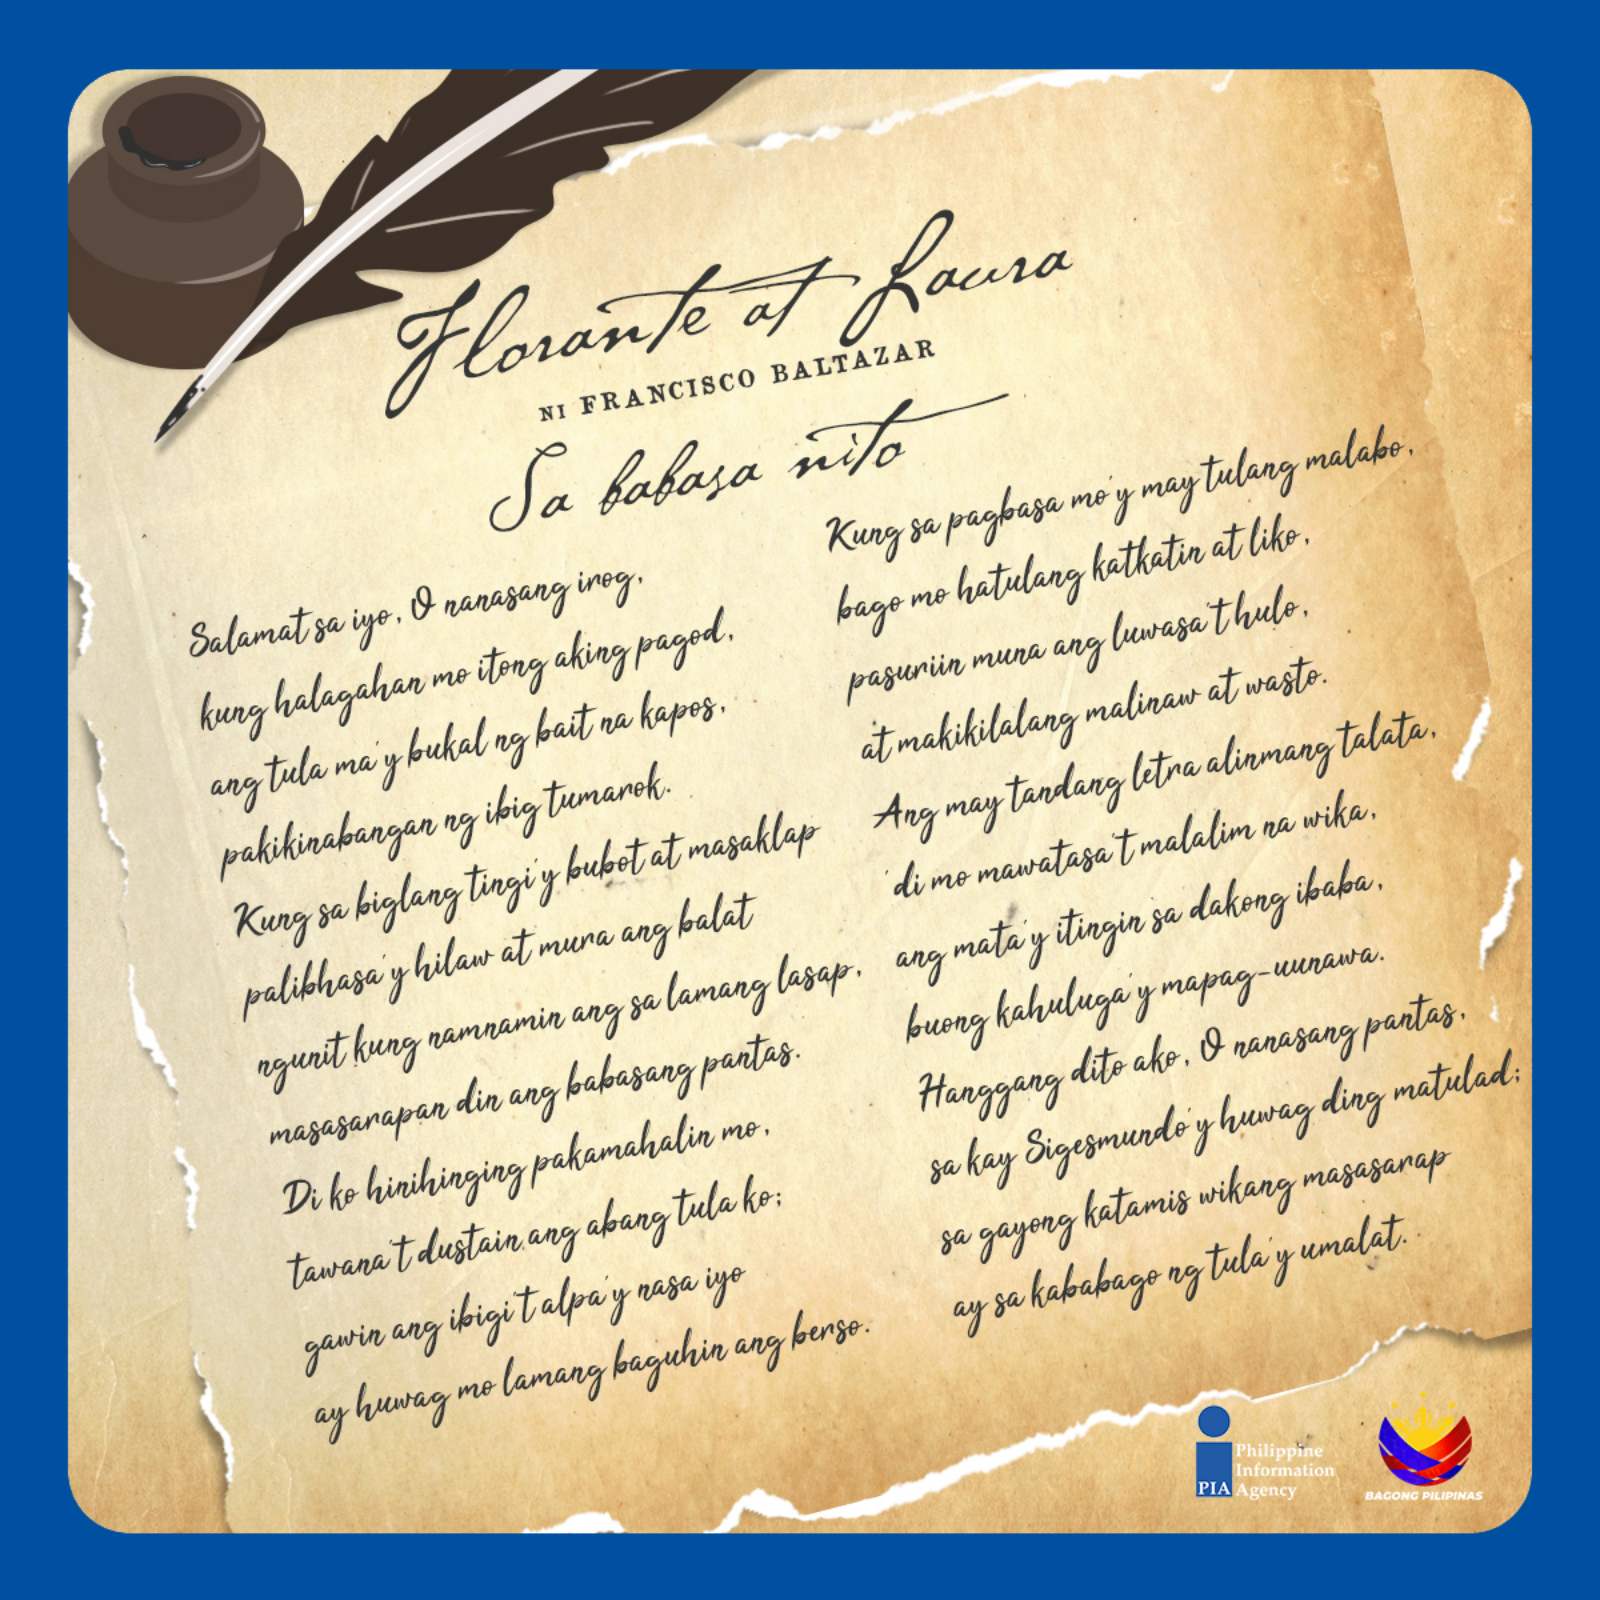 Florante at Laura
NI FRANCISCO BALTAZAR
Sa babasa nito
Salamat sa iyo, O nanasang irog,
kung halagahan mo itong aking pagod,
ang tula ma'y bukal ng bait na kapos,
pakikinabangan ng ibig tumarok.
Kung sa biglang tingi'y bubot at masaklap
palibhasa'y hilaw at mura ang balat
ngunit kung namnamin ang sa lamang lasap,
masasarapan din ang babasang pantas.
Di ko hinihinging pakamahalin mo,
tawana't dustain ang abang tula ko;
gawin ang ibigi't alpa'y nasa iyo
ay huwag mo lamang baguhin ang berso.
Kung sa pagbasa mo'y may tulang malabo,
bago mo hatulang katkatin at liko,
pasuriin muna ang luwasa't hulo,
at makikilalang malinaw at wasto.
Ang may tandang letra alinmang talata,
'di mo mawatasa't malalim na wika,
ang mata'y itingin sa dakong ibaba,
buong kahuluga'y mapag-uunawa.
Hanggang dito ako, O nanasang pantas,
sa kay Sigesmundo'y huwag ding matulad;
sa gayong katamis wikang masasarap
ay sa kababago ng tula'y umalat.
PIA
Philippine
Information
Agency
BAGONG PILIPINAS